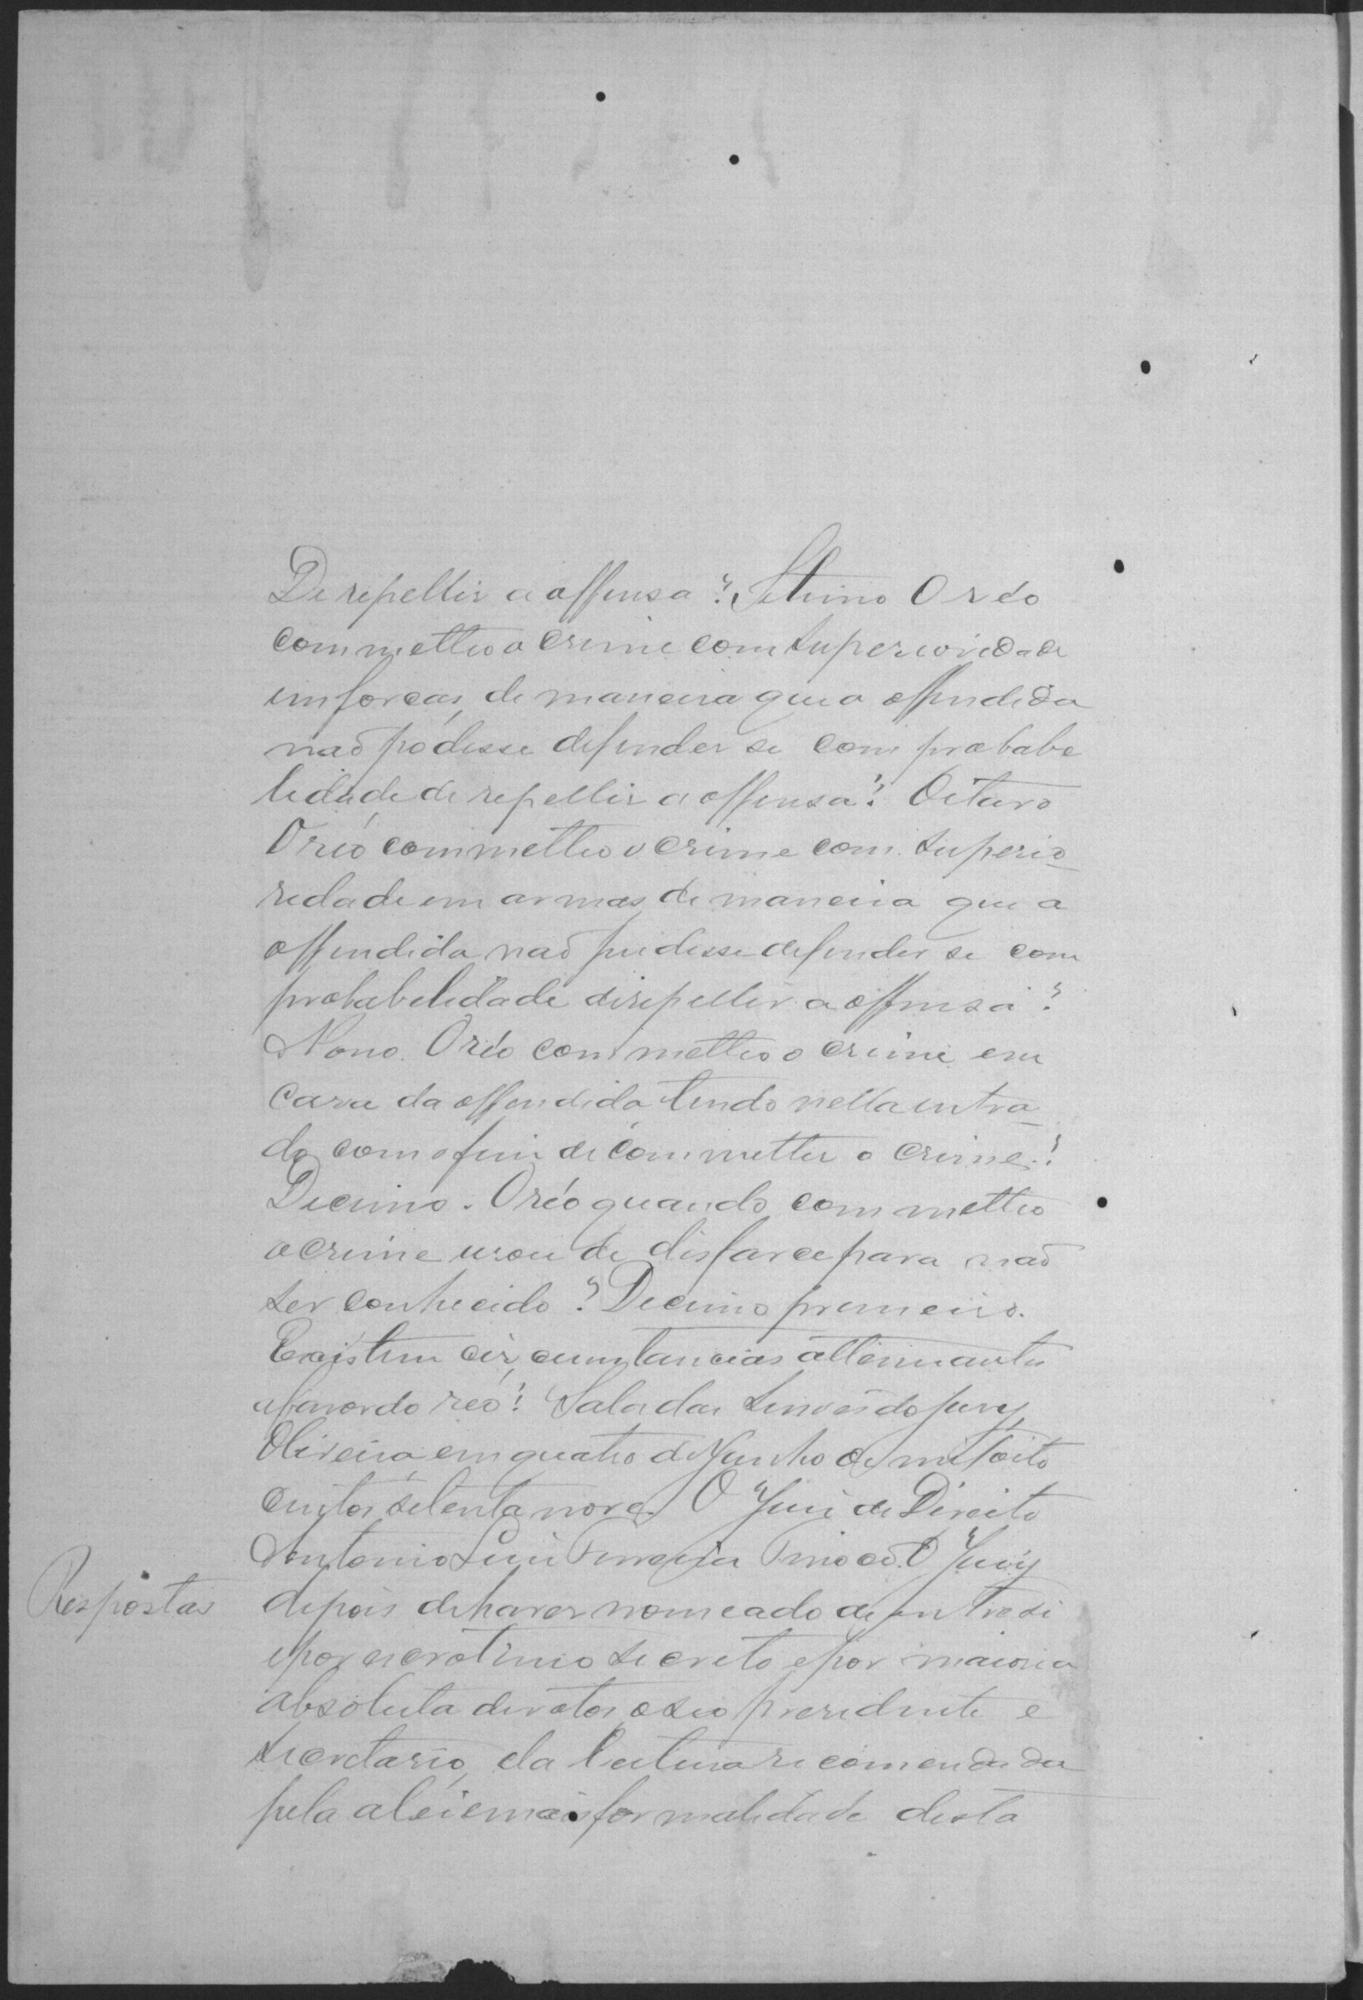 De repellir a offensa? Setimo O réo
commetteo o crime com superioridade
em forcas, de maneira que a offendida
naõ podesse defender se com probabe
lidade de repellir a offensa? Oitavo
O réo commetteo o crime com superio
redade em armas, de maneira que a
offendida naõ pudesse defender se com
probabelidade de repellir a offensa?
Nono. O réo commetteo o crime em
casa da offendida tendo nella entra
do com o fim de commetter o crime?
Decimo. O réo quando commetteo
o crime usou de disfarce para naõ
ser conhecido? Decimo primeiro.
Existem circumstancias attenuantes
a favor do réo? Sala das Sessões do jury
Oliveira em quatro de Junho de mil oito
centos setenta nove. O Juiz de Direito
Antonio Luiz Ferreira. O Jury
Respostas
depois de haver nomeado de entre si
e por escrotinio secreto e por maioria
absoluta de votos, o seo presidente e
secretario, da leitura recomendada
pela a lei e mais formalidade desta